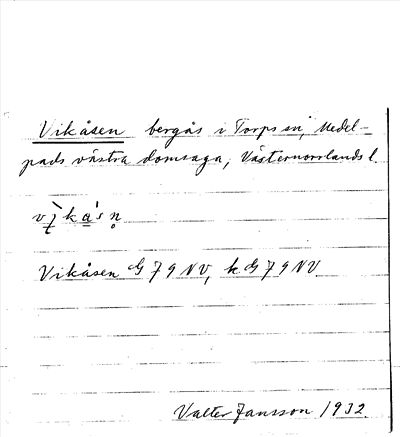 Vikåsen bergås i Torps sn, Medel-
pads västra domsaga, Västernorrlands l.
Vikåsen G 79 NV, k. G 79 NV.
Valter Jansson 1932.